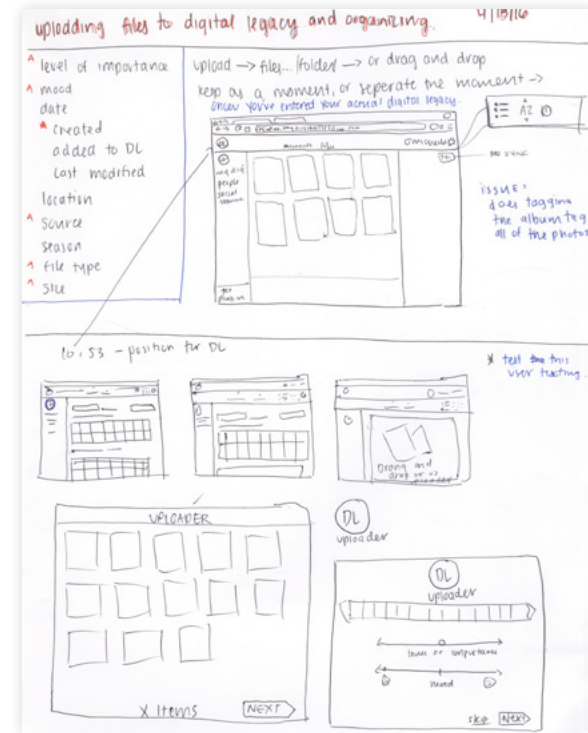 uplodding files to digital legacy and organizing. 4/15/16
^ level of importance
^ mood
date
^ created
added to DL
last modified
location
^ source
season
^ file type
^ size
upload → files... /folder → or drag and drop
keep as a moment, or seperate the moment →
once you've entered your actual digital legacy.
AZ
moments files
people
social
issue:
does tagging
the album tag
all of the photos
10:53 - position for DL
* test this
user testing
drop
uploader
UPLOADER
X Items
NEXT
DL
uploader
DL
uploader
level of importance
mood
skip NEXT